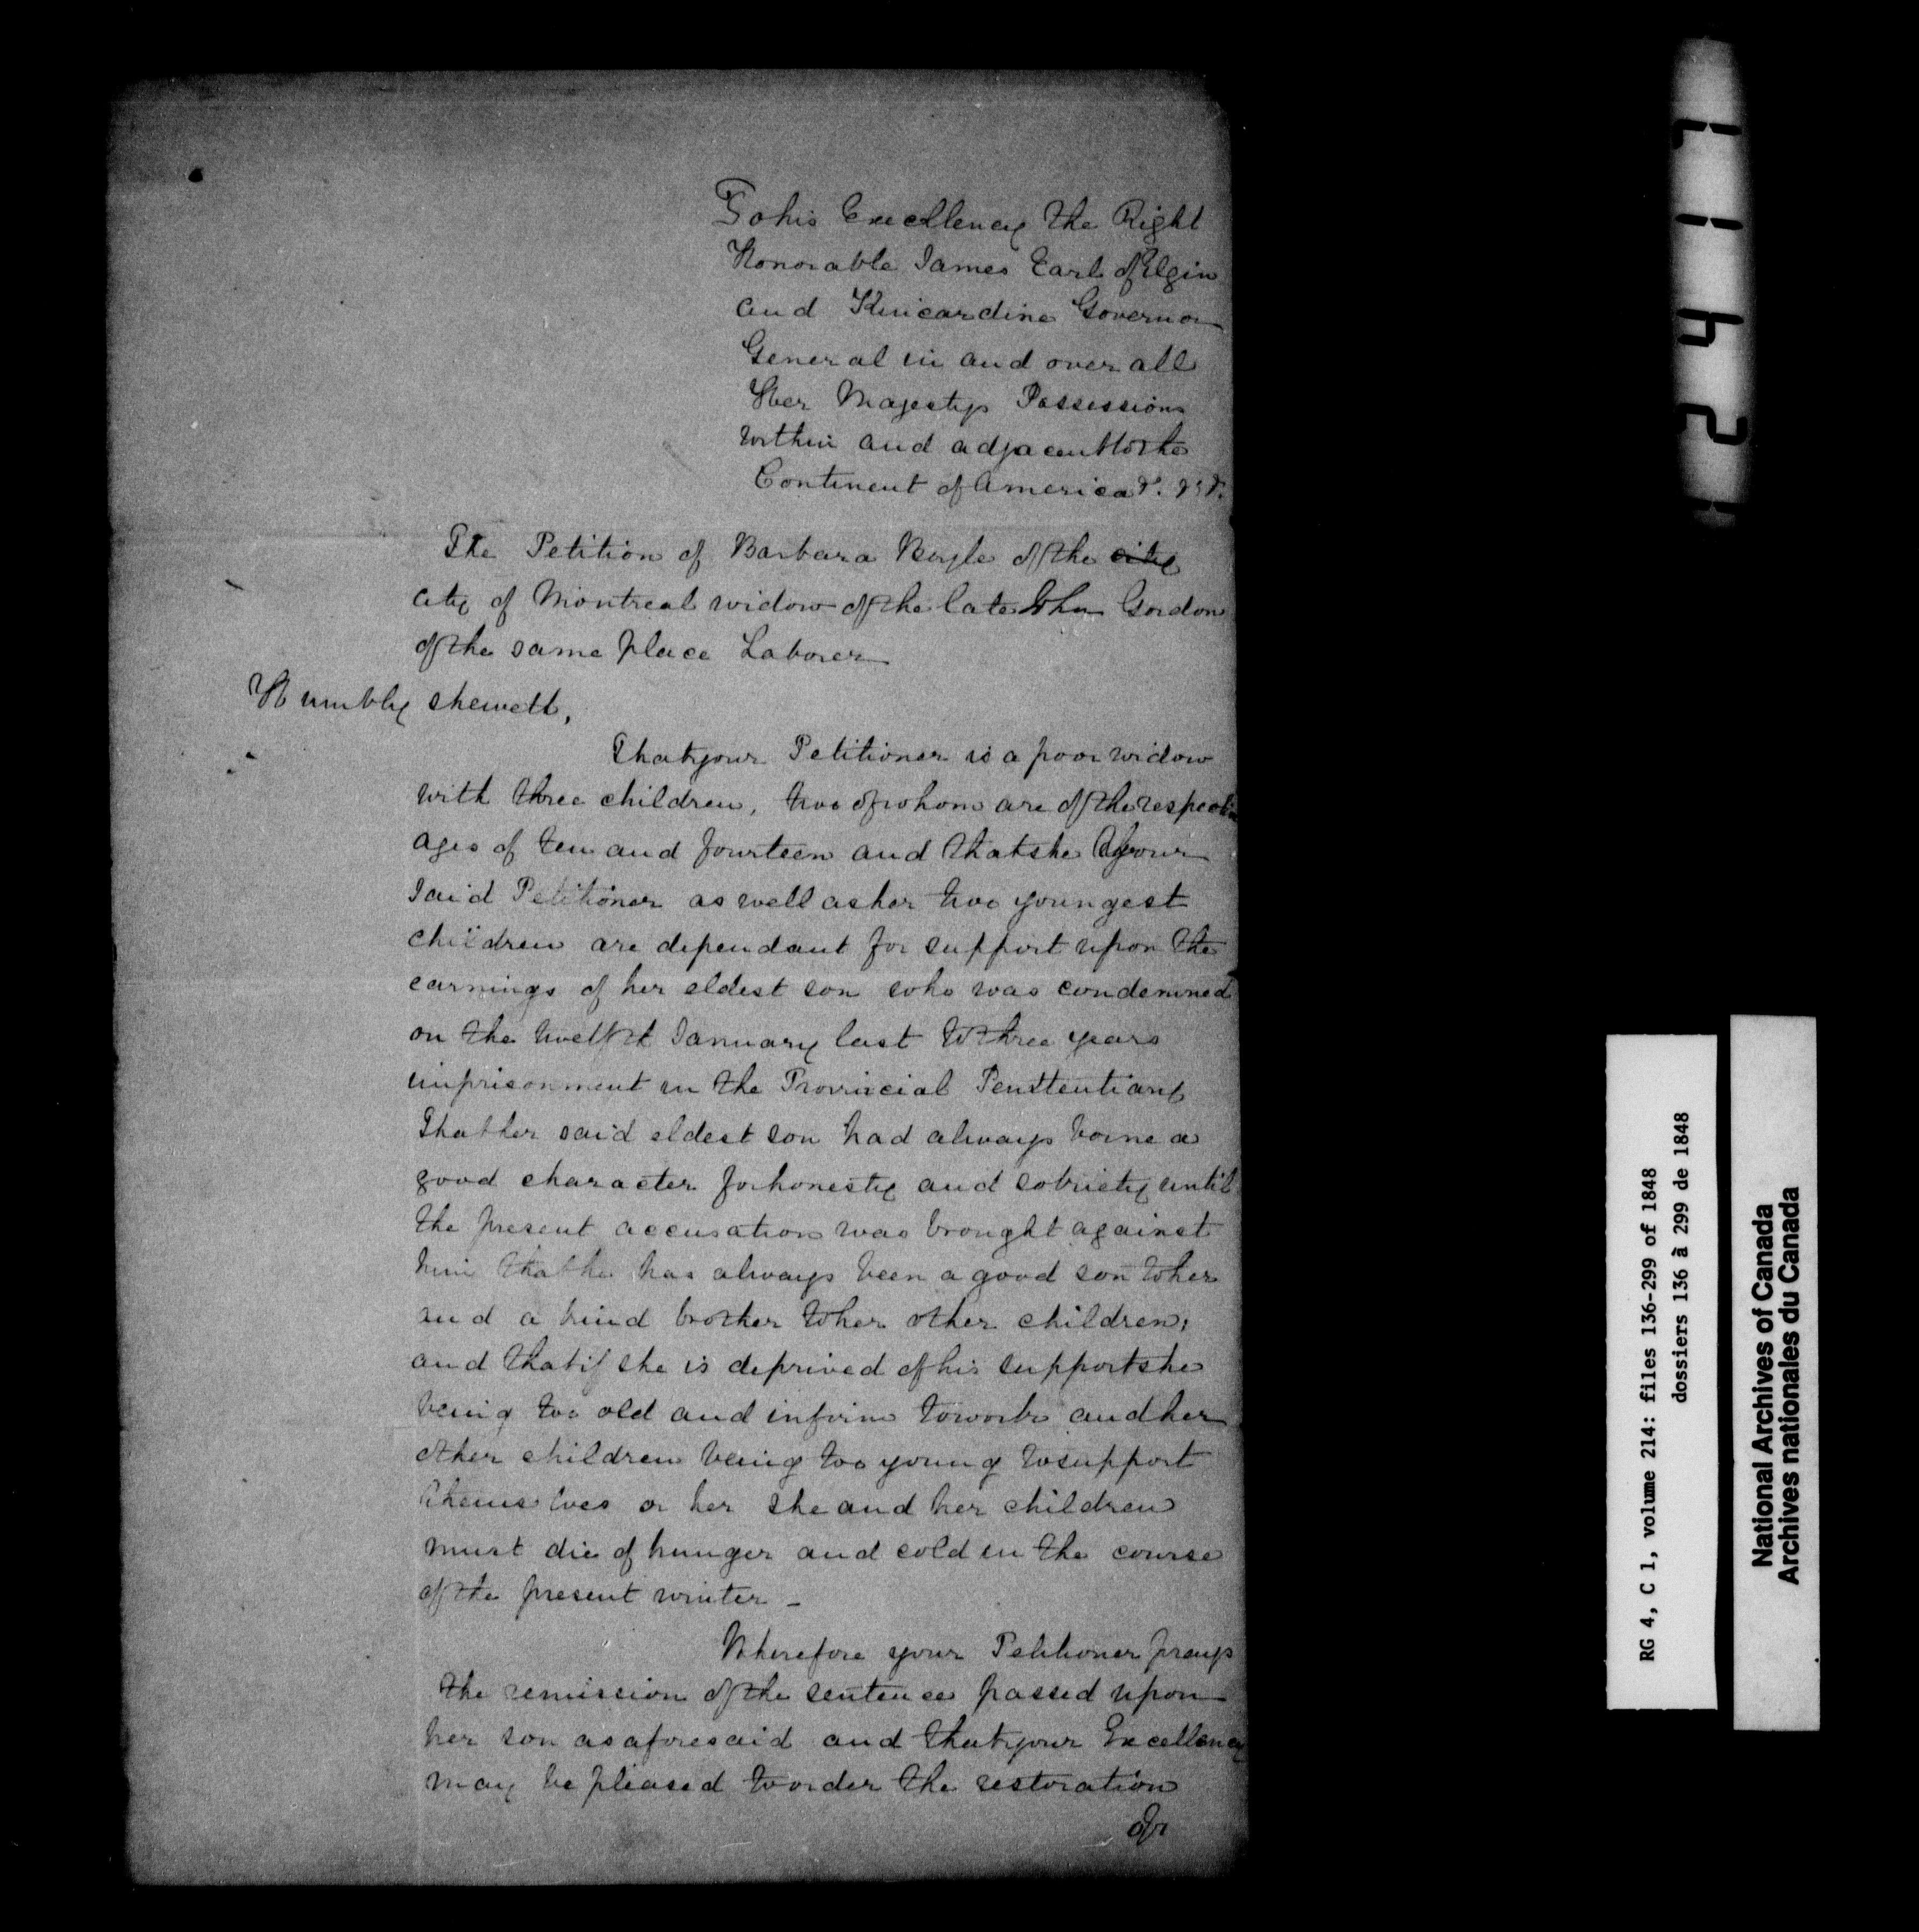 To his Excellency the Right
Honorable James Earl of Elgin
and Kincardine Governor
General in and over all
Her Majestys Possessions
within and adjacent to the
Continent of America &. &. &.
The Petition of Barbara Boyle of the city
city of Montreal widow of the late John Gordon
of the same place Laborer
Humbly sheweth,
That your Petitioner is a poor widow
with three children, two of whom are of the respective
ages of ten and fourteen and that she your
said Petitioner as well as her two youngest
children are dependant for support upon the
earnings of her eldest son who was condemned
on the twelfth January last to three years
imprisonment in the Provincial Penitentiary
That her said eldest son had always borne a
good character for honesty and sobriety until
the present accusation was brought against
him that he has always been a good son to her
and a kind brother to her other children;
and that if she is deprived of his support she
being too old and infirm to work and her
other children being too young to support
themselves or her she and her children
must die of hunger and cold in the course
of the present winter -
Wherefore your Petitioner prays
the remission of the sentence passed upon
her son as aforesaid and that your Excellency
may be pleased to order the restoration
of
RG 4, C 1, volume 214: files 136-299 of 1848
dossiers 136 à 299 de 1848
National Archives of Canada
Archives nationales du Canada